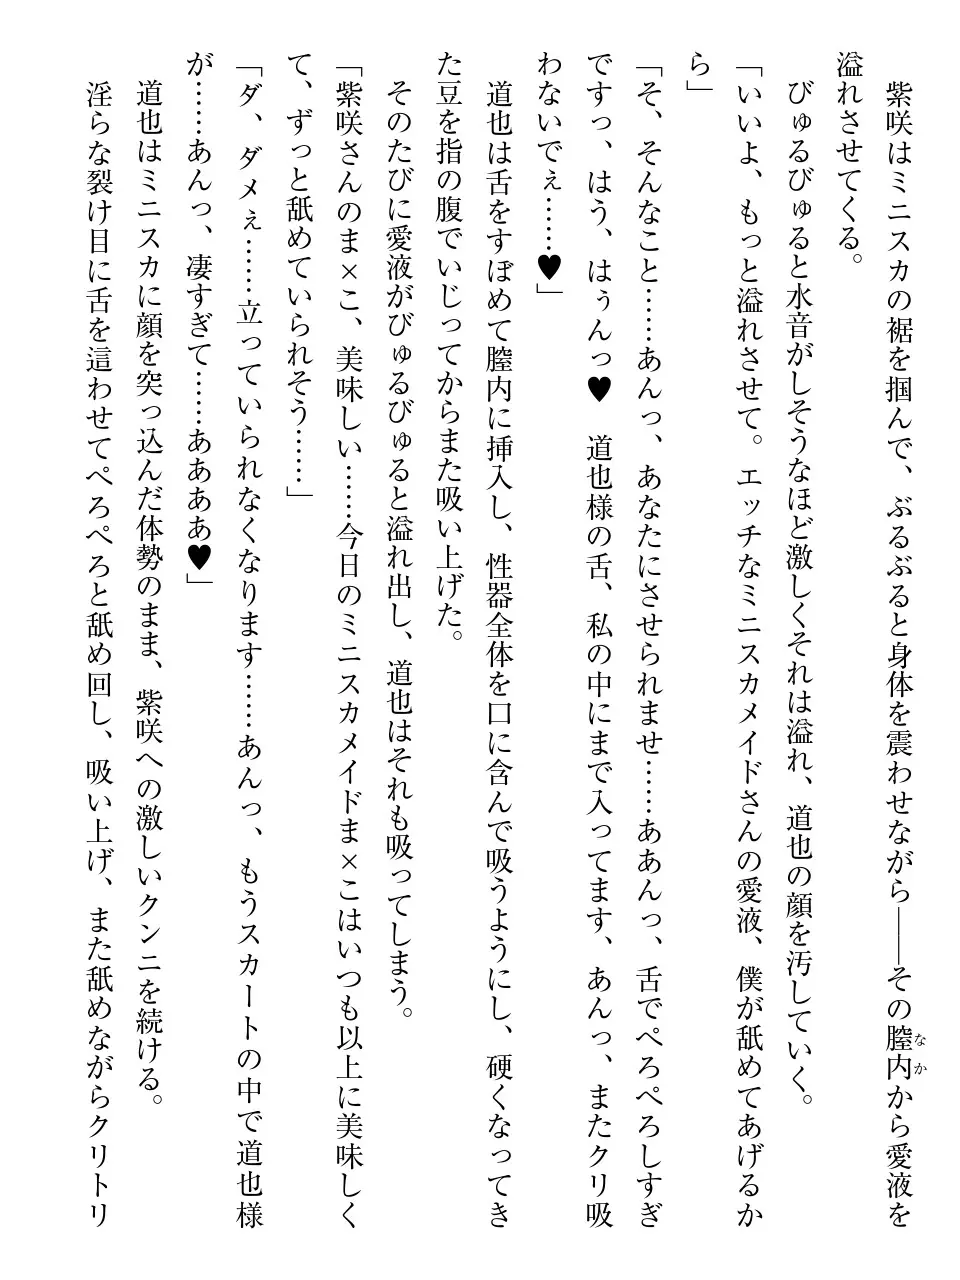 紫咲はミニスカの裾を掴んで、ぶるぶると身体を震わせながら――その膣内なかから愛液を
溢れさせてくる。
びゅるびゅると水音がしそうなほど激しくそれは溢れ、道也の顔を汚していく。
「いいよ、もっと溢れさせて。エッチなミニスカメイドさんの愛液、僕が舐めてあげるか
ら」
「そ、そんなこと……あんっ、あなたにさせられませ……ああんっ、舌でぺろぺろしすぎ
ですっ、はう、はぅんっ♥　道也様の舌、私の中にまで入ってます、あんっ、またクリ吸
わないでぇ……♥」
道也は舌をすぼめて膣内に挿入し、性器全体を口に含んで吸うようにし、硬くなってき
た豆を指の腹でいじってからまた吸い上げた。
そのたびに愛液がびゅるびゅると溢れ出し、道也はそれも吸ってしまう。
「紫咲さんのま×こ、美味しい……今日のミニスカメイドま×こはいつも以上に美味しく
て、ずっと舐めていられそう……」
「ダ、ダメぇ……立っていられなくなります……あんっ、もうスカートの中で道也様
が……あんっ、凄すぎて……ああああ♥」
道也はミニスカに顔を突っ込んだ体勢のまま、紫咲への激しいクンニを続ける。
淫らな裂け目に舌を這わせてぺろぺろと舐め回し、吸い上げ、また舐めながらクリトリ